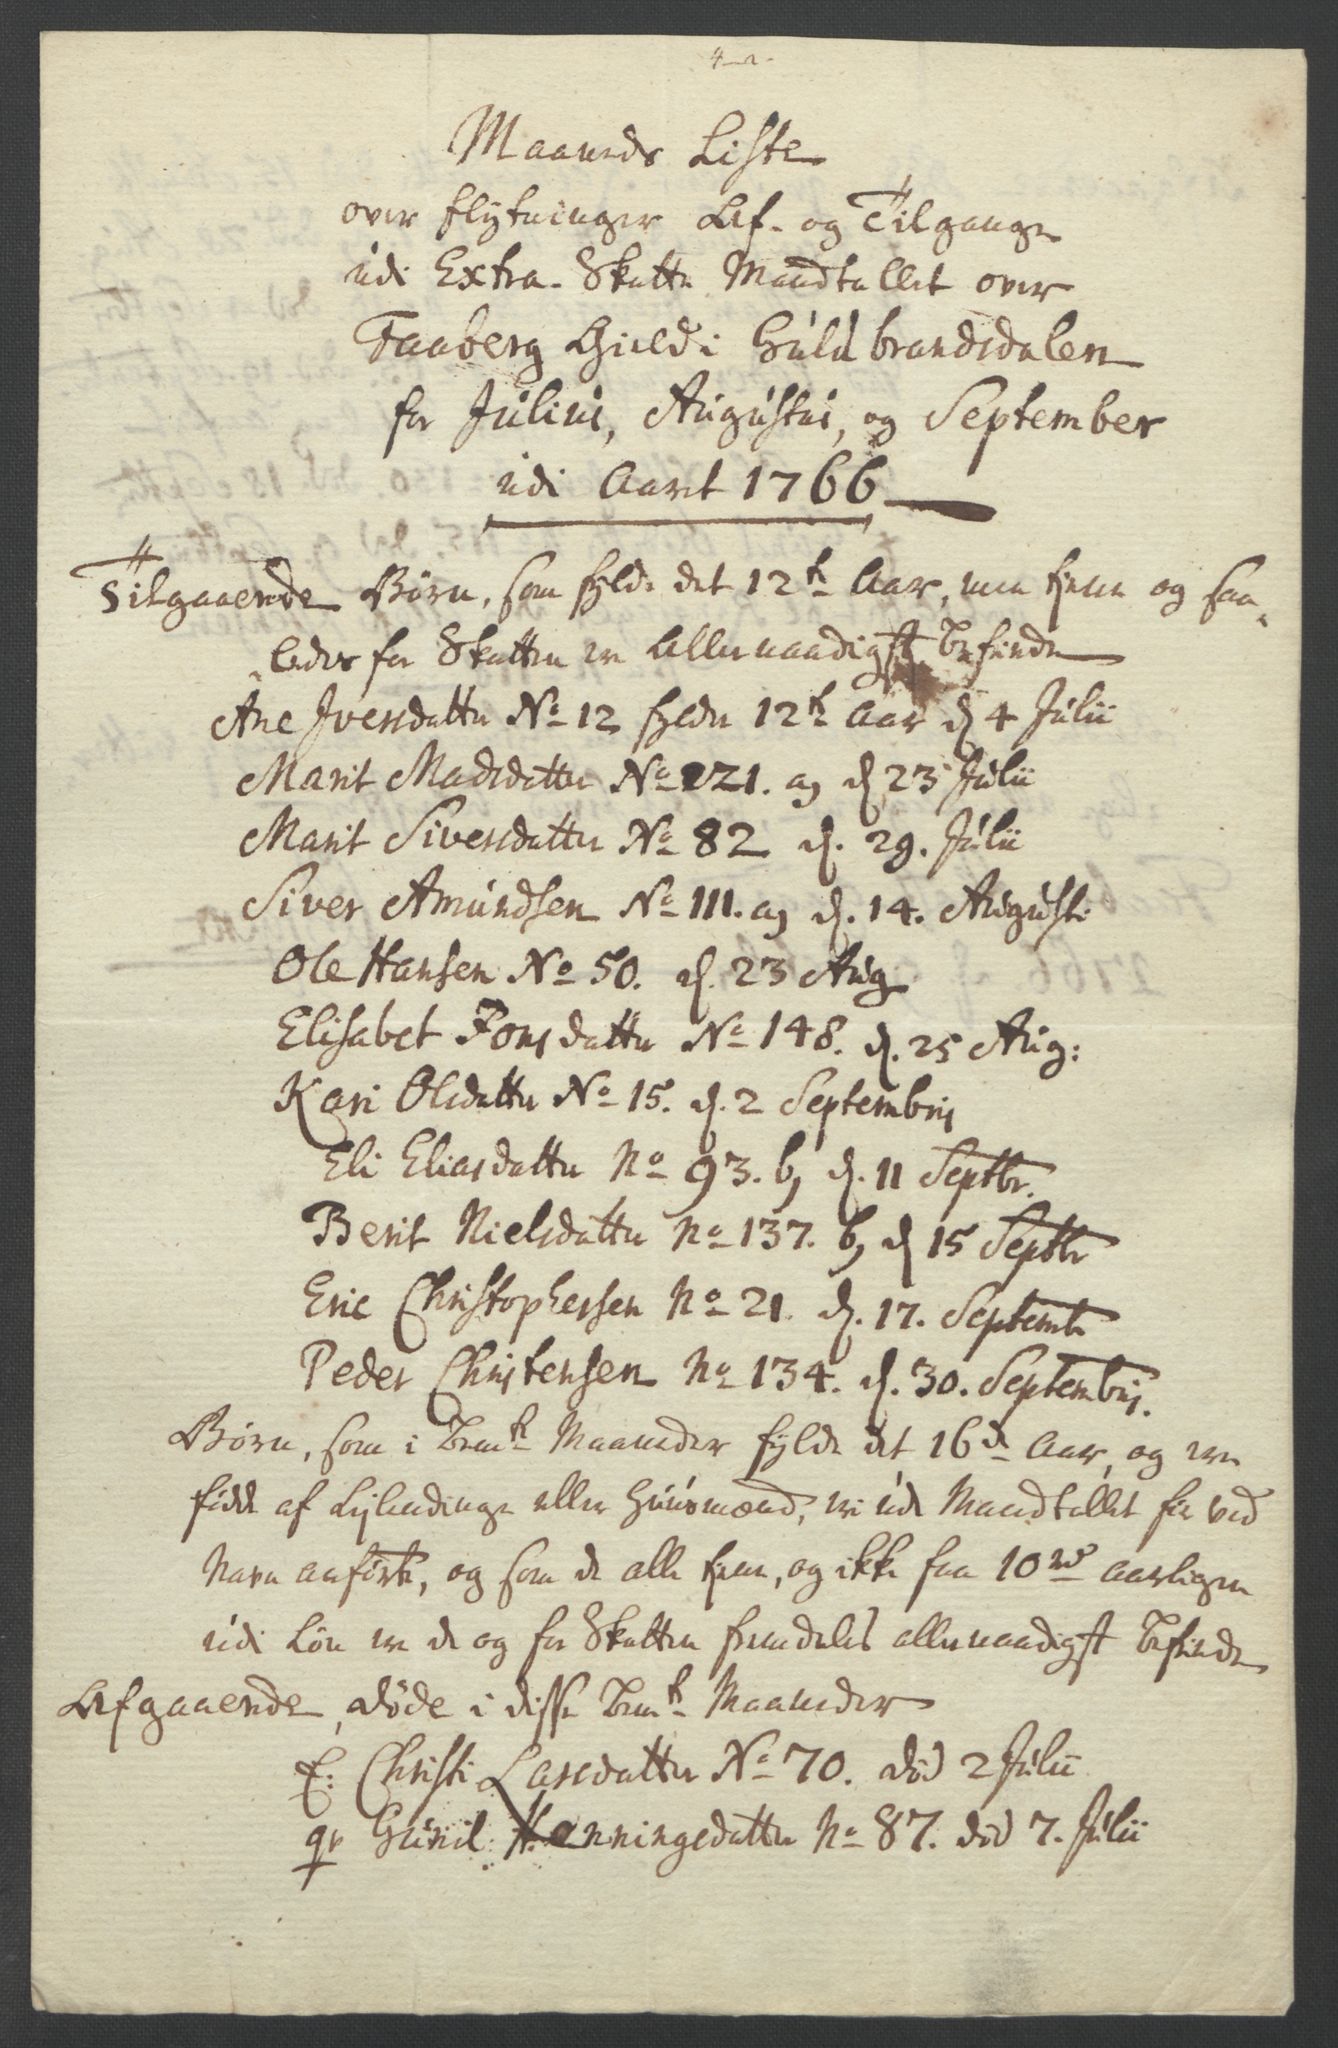 Maaneds Liste
over flytninger Af- og Tilgange
udi Extra-Skatte Mandtallet over
Faaberg Gield i Guldbrandsdalen
for Julius, Augustus, og September
udi Aaret 1766
Tilgaaende Børn, som fylde det 12te Aar, men tiene og saa-
ledes for Skatten ere allernaadigst befriede
Ane Iversdatter No 12 fylder 12te Aar d. 4 Julii
Marit Madsdatter No 121. a, d. 23 Julii
Marit Siversdatter No 82 d. 29. Julii
Siver Amundsen No 111. a, d. 14. Augusti
Ole Hansen No 50. d. 23 Aug
Elisabet Jonsdatter No 148. d. 25 Aug:
Kari Olsdatter No 15. d. 2 Septembris
Eli Eliasdatter No 93. b, d. 11 Septbr.
Berit Nielsdatter No 137. b, d 15 Septbr
Eric Christophersen No 21. d. 17. Septembr
Peder Christensen No 134. d. 30. Septembris.
Børn, som i bemte Maaneder fylde det 16de Aar, og ere
fødde af Leylendinge eller Huusmænd, ere udi Mandtallet før ved
Navn anførte, og som de alle tiene, og ikke faa 10 rd aarligen
udi Løn ere de og for Skatten fremdeles allernaadigst befriede
Afgaaende, døde i disse bemte Maaneder
E: Christi Larsdatter No 70. død 2 Julii
qv Gunil Henningsdatter No 87. død 7. Julii